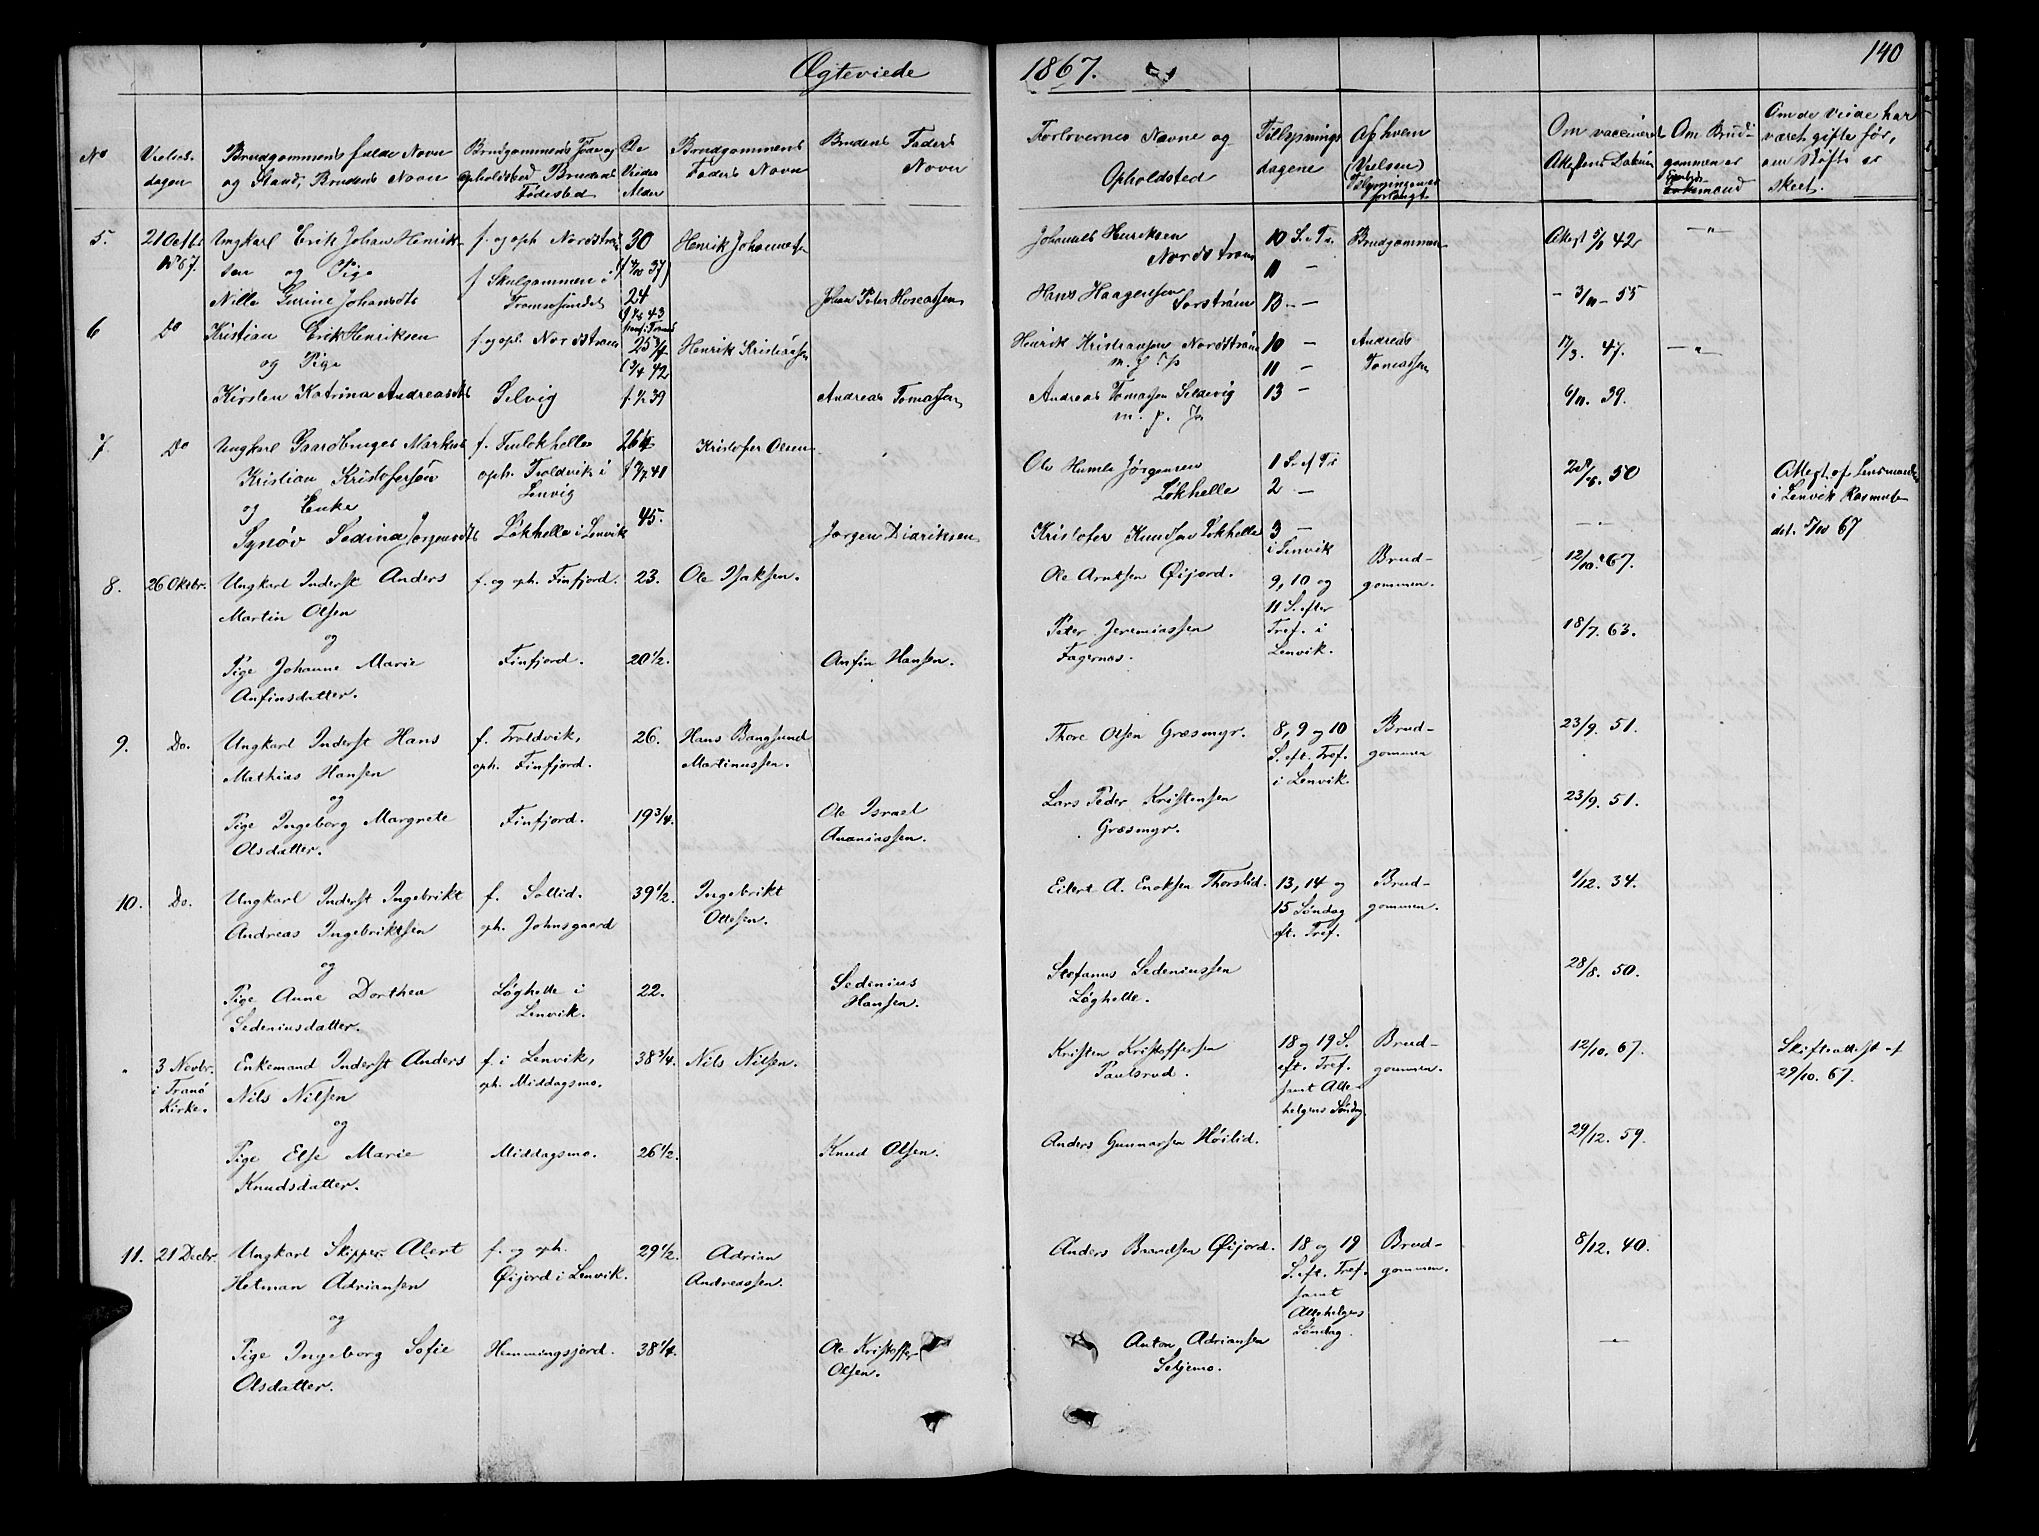 Ægteviede 1867.
140
No
Vielses-
dagen
Brudgommens fulde Navn
og Stand, Brudens Navn
Brudgommens Føde og
opholdsted Brudens
Fødested
De
Viedes
Alder
Brudgommens
Faders Navn
Brudens Faders
Navn
Forlovernes Navne og
Opholdsted
Tillysnings
dagene
Af hvem
(Vielsen)
Tillysningernes
forlangt
Om vaccineret
Attestens Datum
Om Brud-
gommen er
Om de Viede har
været gifte før,
om Skifte er
skeet.
5. 21 Octbr
1867.
Ungkarl Erik Johan Henrik-
sen og Pige
Nille Gurine Johansdtr
f. og oph. Nordstrøm
f. Skulgammen i
Tromsøsundet
30
24
Henrik Johannesen
Johan Peter Hoseassen
Johannes Henriksen
Nordstrøm
Hans Haagensen
Sorstrøm
10 S. e. Tr.
11 –
13 –
Brudgommen
Attest 5/1 42
– 3/11 – 55
– " –
6 Do
Kristian Erik Henriksen
og Pige
Kirsten Katrina Andreasdtr
f. og oph. Nordstrøm
Selvig
25 3/4
f. 1/2 39
Henrik Kristiansen
Andreas Tomassen
Henrik Kristiansen Nordstrøm
m. f. P.
Andreas Tomassen Seldevig
m. p. P.
10 –
11 –
13 –
Andreas
Tomassen
17/3. 47.
6/11. 39.
– " –
7. Do
Ungkarl Gaardbruger Markus
Kristian Kristofersøn
og Enke
Synøv Sedina Jørgensdtr
f. Finlokhelle
oph. Troldvik i
Lenvig
Løkhelle i Lenvik
26 1/4
45.
Kristofer Olsen
Jørgen Didriksen
Ole Humle Jørgensen
Løkhelle
Kristofer Knudsen Løkhelle
1 S. ef Tr
2 –
3 –
i Lenvik
28/8. 50
– " –
Attest af Lensmanden
i Lenvik Rasmus-
dat. 5/10 67
8. 26 Oktbr.
Ungkarl Inderst Anders
Martin Olsen
og
Pige Johanne Marie
Anfinsdatter.
f. og oph. Finfjord.
Finfjord.
23.
20 1/2.
Ole Isaksen.
Anfin Hansen.
Ole Arntsen Øijord.
Peter Jeremiassen
Fagernæs.
9, 10 og
11 S. efter
Tref. i
Lenvik.
Brud-
gommen.
12/10. 67.
18/7. 63.
9. Do.
Ungkarl Inderst Hans
Mathias Hansen
og
Pige Ingeborg Margrete
Olsdatter.
f. Troldvik,
oph. Finfjord.
Finfjord.
26.
19 3/4.
Hans Bangsund
Martinussen.
Ole Israel
Ananiassen.
Thore Olsen Græsmyr.
Lars Peder Kristensen
Græsmyr.
8, 9 og 10
S. eft. Tref.
i Lenvik.
Brud-
gommen
23/9. 51.
23/9. 51.
10. Do.
Ungkarl Inderst Ingebrikt
Andreas Ingebriktsen
og
Pige Anne Dorthea
Sedeniusdatter.
f. Sollid.
oph. Johnsgaard
Løghelle i
Lenvik.
39 1/2.
22.
Ingebrikt
Ottesen.
Sedenius
Hansen.
Eilert A. Enoksen Thorslid.
Stefanus Sedeniussen
Løghelle.
13, 14 og
15 Søndag
eft. Tref.
Brud-
gommen.
1/12. 34.
28/8. 50.
" 3 Novbr.
i Tranø
Kirke.
Enkemand Inderst Anders
Nils Nilsen
og
Pige Else Marie
Knudsdatter.
f. i Lenvik,
oph. Middagsmo.
Middagsmo.
38 3/4.
26 1/2.
Nils Nilsen.
Knud Olsen.
Kristen Kristoffersen
Paulsrud.
Anders Gunnarsen Høilid.
18 og 19 S.
eft. Tref.
samt Alle-
helgens Søndag
Brud-
gommen.
12/10. 67.
29/12. 59.
Skifteattest af
29/10. 67.
11. 21 Decbr.
Ungkarl Skipper Alert
Hetman Adriansen
og
Pige Ingeborg Sofie
Olsdatter.
f. og oph.
Øijord i Lenvik.
Hemmingsjord.
29 1/2.
38 1/4.
Adrian
Andreassen.
Ole Kristoffer
Olsen.
Anders Baardsen Øijord.
Anton Adriansen
Seljemo.
18 og 19
S. eft. Tref.
samt
Allehelgens
Søndag.
Brud-
gommen.
8/12. 40.
– " –